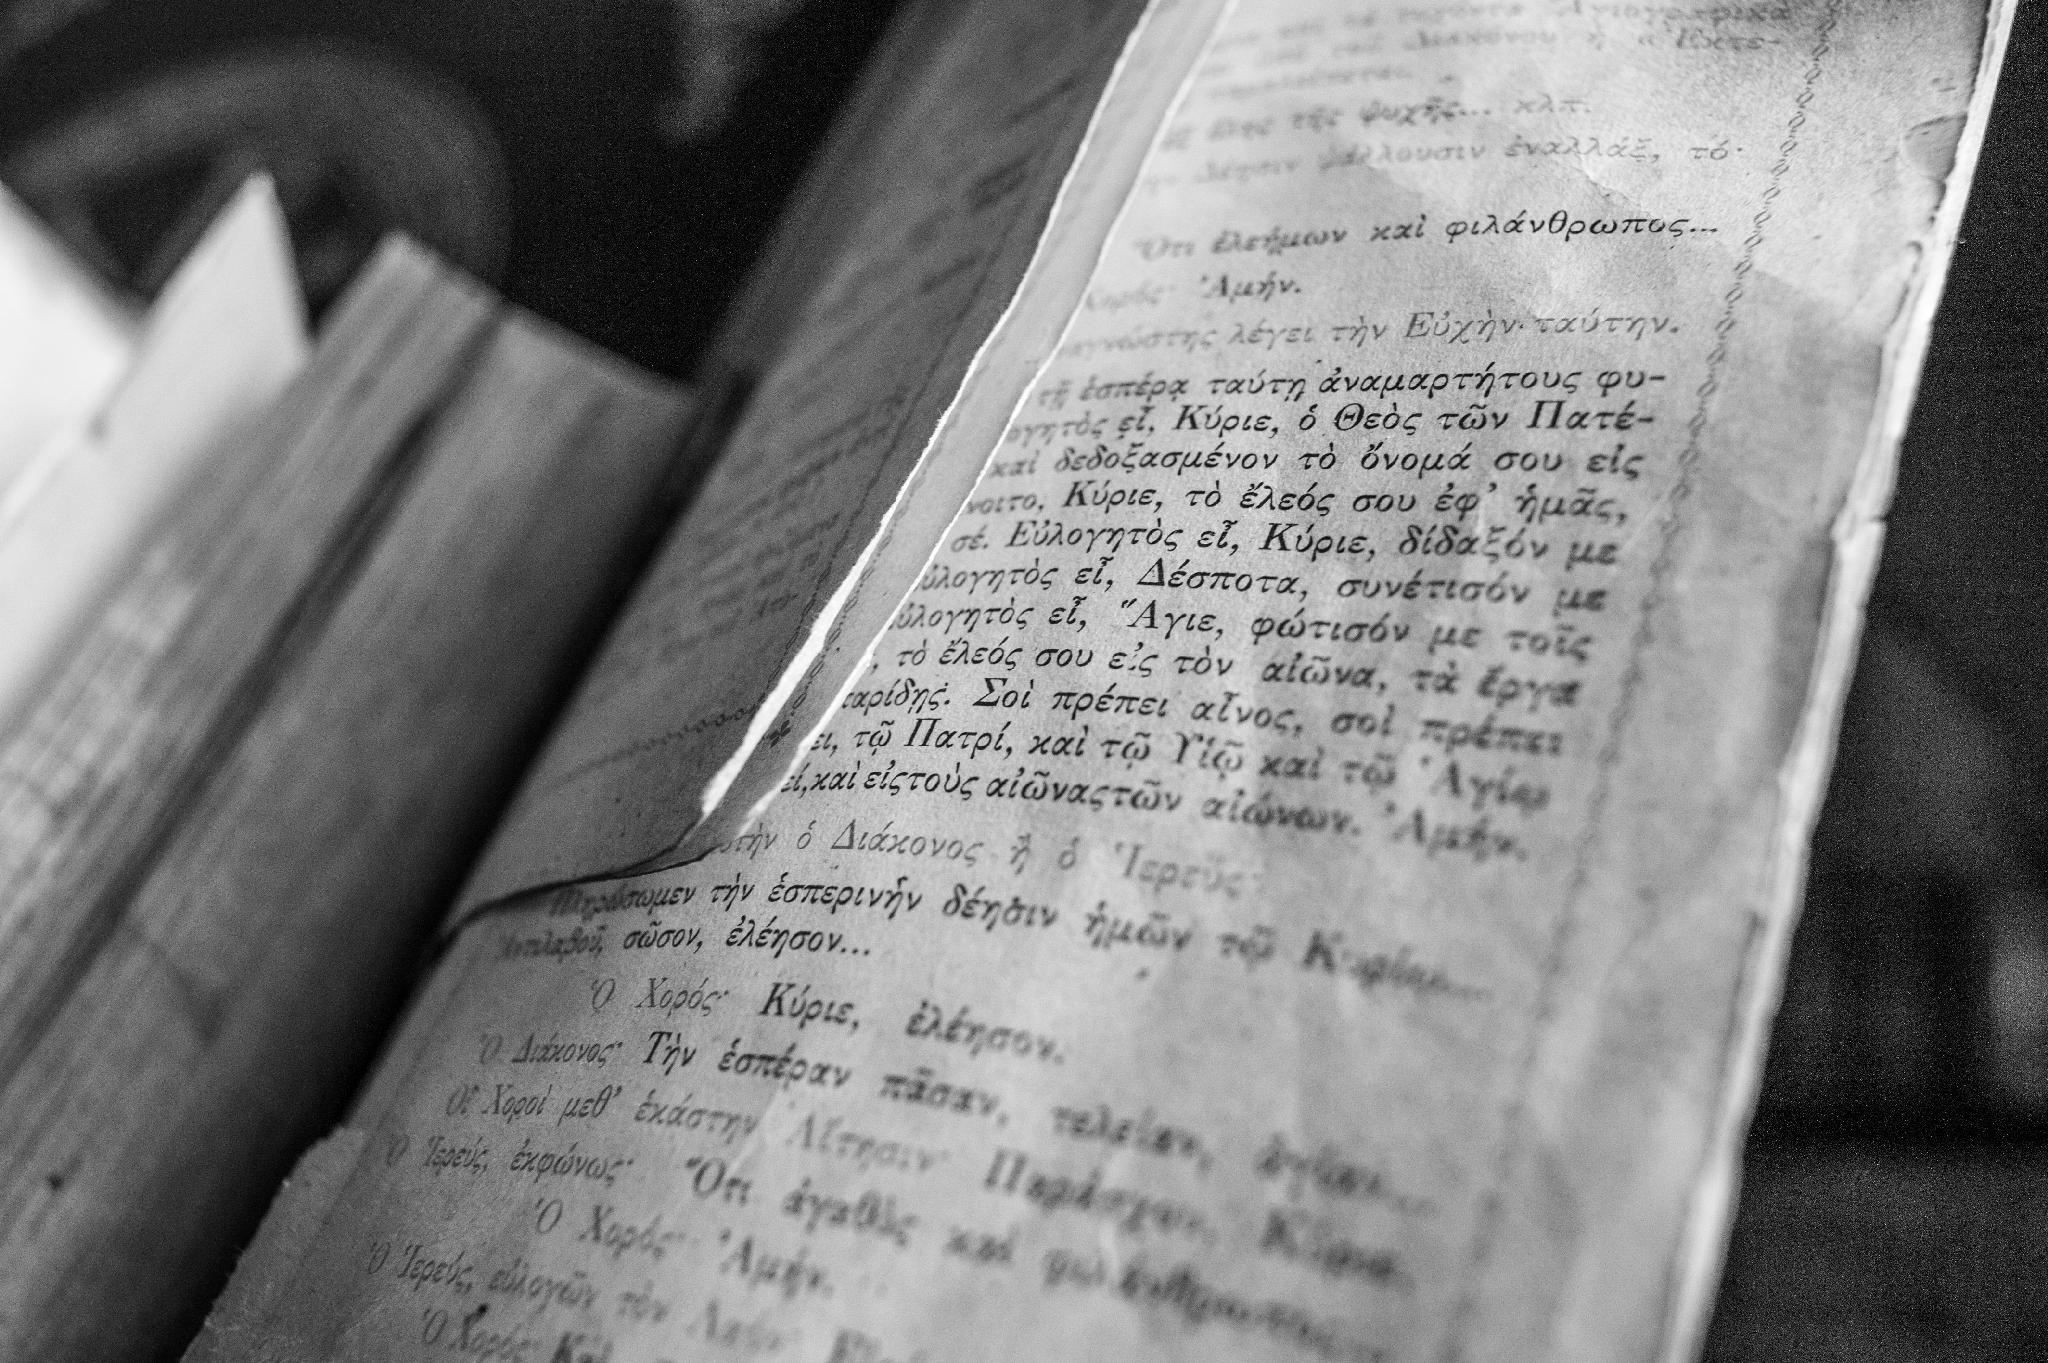 τῆς ψυχῆς... κλπ.
ψάλλουσιν ἐναλλάξ, τό·
Ὅτι ἐλεήμων καὶ φιλάνθρωπος...
Χορός· Ἀμήν.
λέγει τὴν Εὐχὴν· ταύτην.
τῇ ἑσπέρᾳ ταύτῃ ἀναμαρτήτους φυ-
ογητὸς εἶ, Κύριε, ὁ Θεὸς τῶν Πατέ-
καὶ δεδοξασμένον τὸ ὄνομά σου εἰς
νοιτο, Κύριε, τὸ ἔλεός σου ἐφ' ἡμᾶς,
σέ. Εὐλογητὸς εἶ, Κύριε, δίδαξόν με
ὐλογητὸς εἶ, Δέσποτα, συνέτισόν με
ὐλογητὸς εἶ, Ἅγιε, φώτισόν με τοῖς
, τὸ ἔλεός σου εἰς τὸν αἰῶνα, τὰ ἔργα
αρίδῃς. Σοὶ πρέπει αἶνος, σοὶ πρέπει
ει, τῷ Πατρί, καὶ τῷ Υἱῷ καὶ τῷ Ἁγίῳ
εί, καὶ εἰς τοὺς αἰῶνας τῶν αἰώνων. Ἀμήν.
τὴν ὁ Διάκονος ἢ ὁ Ἱερεύς·
Πληρώσωμεν τὴν ἑσπερινὴν δέησιν ἡμῶν τῷ Κυρίῳ...
Ἀντιλαβοῦ, σῶσον, ἐλέησον...
Ὁ Χορός· Κύριε, ἐλέησον.
Ὁ Διάκονος· Τὴν ἑσπέραν πᾶσαν, τελείαν, ἁγίαν...
Οἱ Χοροὶ μεθ' ἑκάστην Αἴτησιν· Παράσχου, Κύριε.
Ὁ Ἱερεύς, ἐκφώνως· Ὅτι ἀγαθὸς καὶ φιλάνθρωπος
Ὁ Χορός· Ἀμήν.
Ὁ Ἱερεύς, εὐλογῶν τὸν Λαόν·
Ὁ Χορός· Καὶ